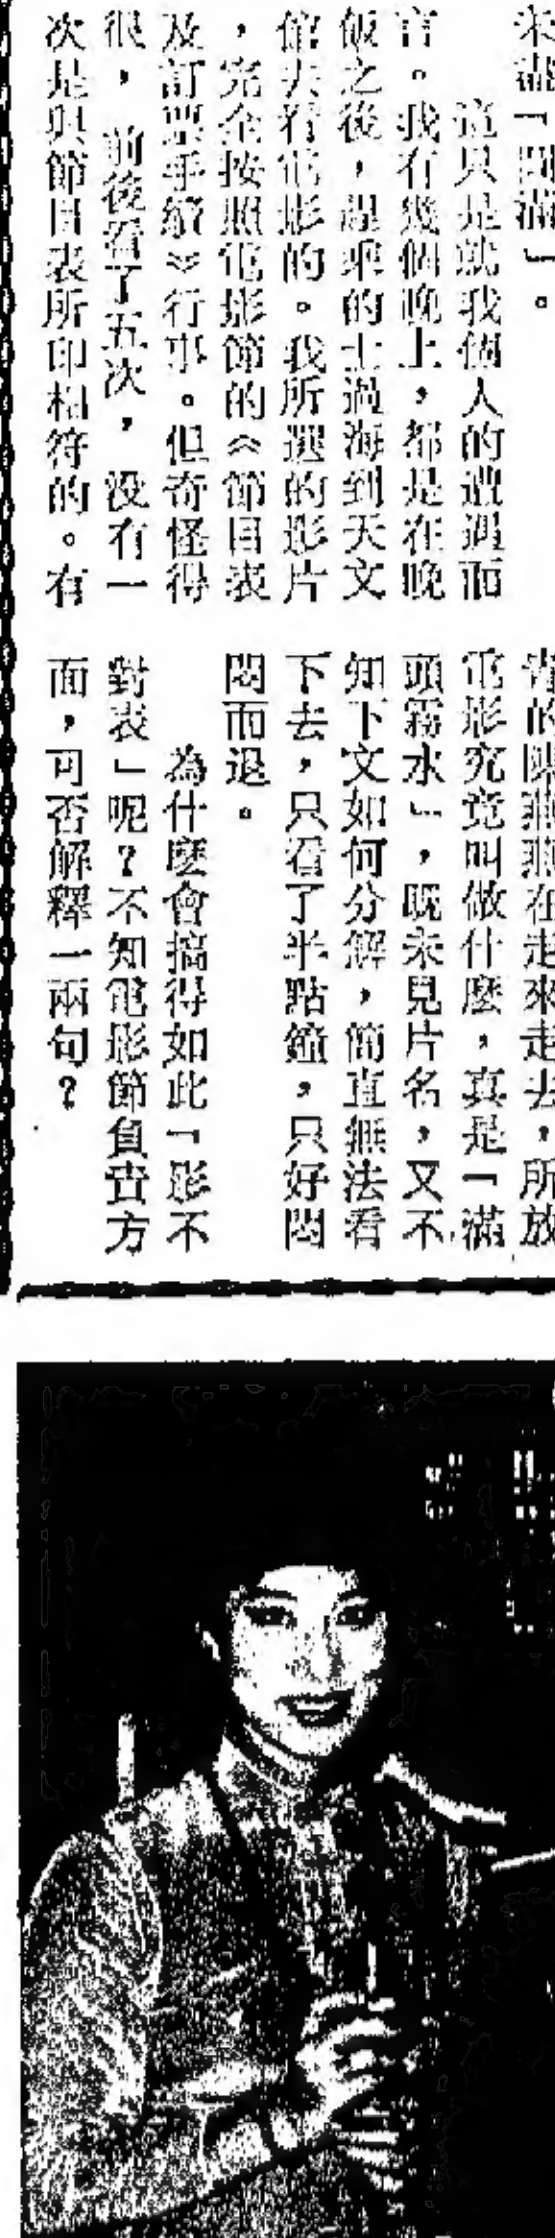 未盡「圓滿」。
這只是就我個人的遭遇而
言。我有幾個晚上，都是在晚
飯之後，趕乘的士過海到天文
館去看電影的。我所選的影片
，完全按照電影節的《節目表
及訂票手續》行事。但奇怪得
很，前後看了五次，没有一
次是與節目表所印相符的。有
青的陳燕燕在走來走去，所放
電影究竟叫做什麽，真是「滿
頭霧水」，既未見片名，又不
知下文如何分解，簡直無法看
下去，只看了半點鐘，只好悶
悶而退。
為什麽會搞得如此「影不
對表」呢？不知電影節負責方
面，可否解釋一兩句？